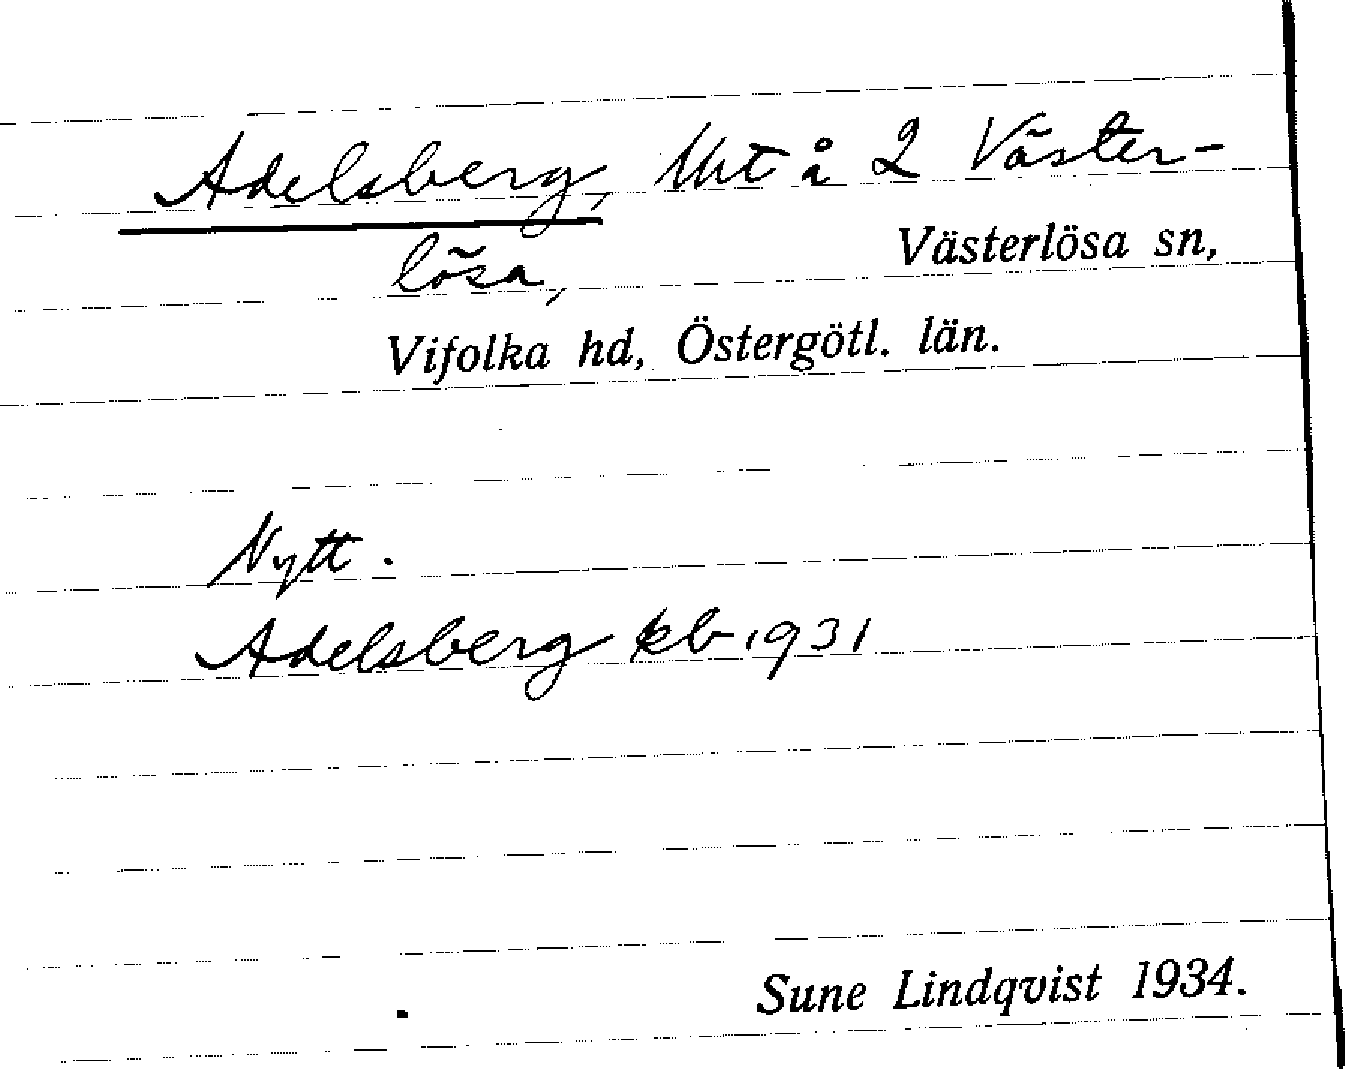 Adelsberg, lht å 2 Väster-
lösa,
Västerlösa sn,
Vifolka hd, Östergötl. län.
Nytt.
Adelsberg kb 1931
Sune Lindqvist 1934.